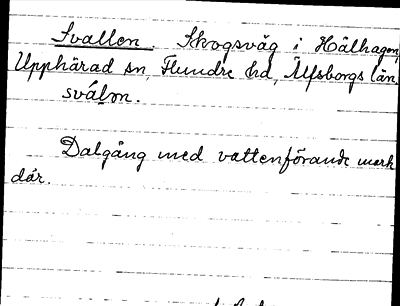 Svallen. Skogsväg i Hålhagen,
Upphärad sn, Flundre hd, Älfsborgs län.
svál̥on.
Dalgång med vattenförande mark
där.